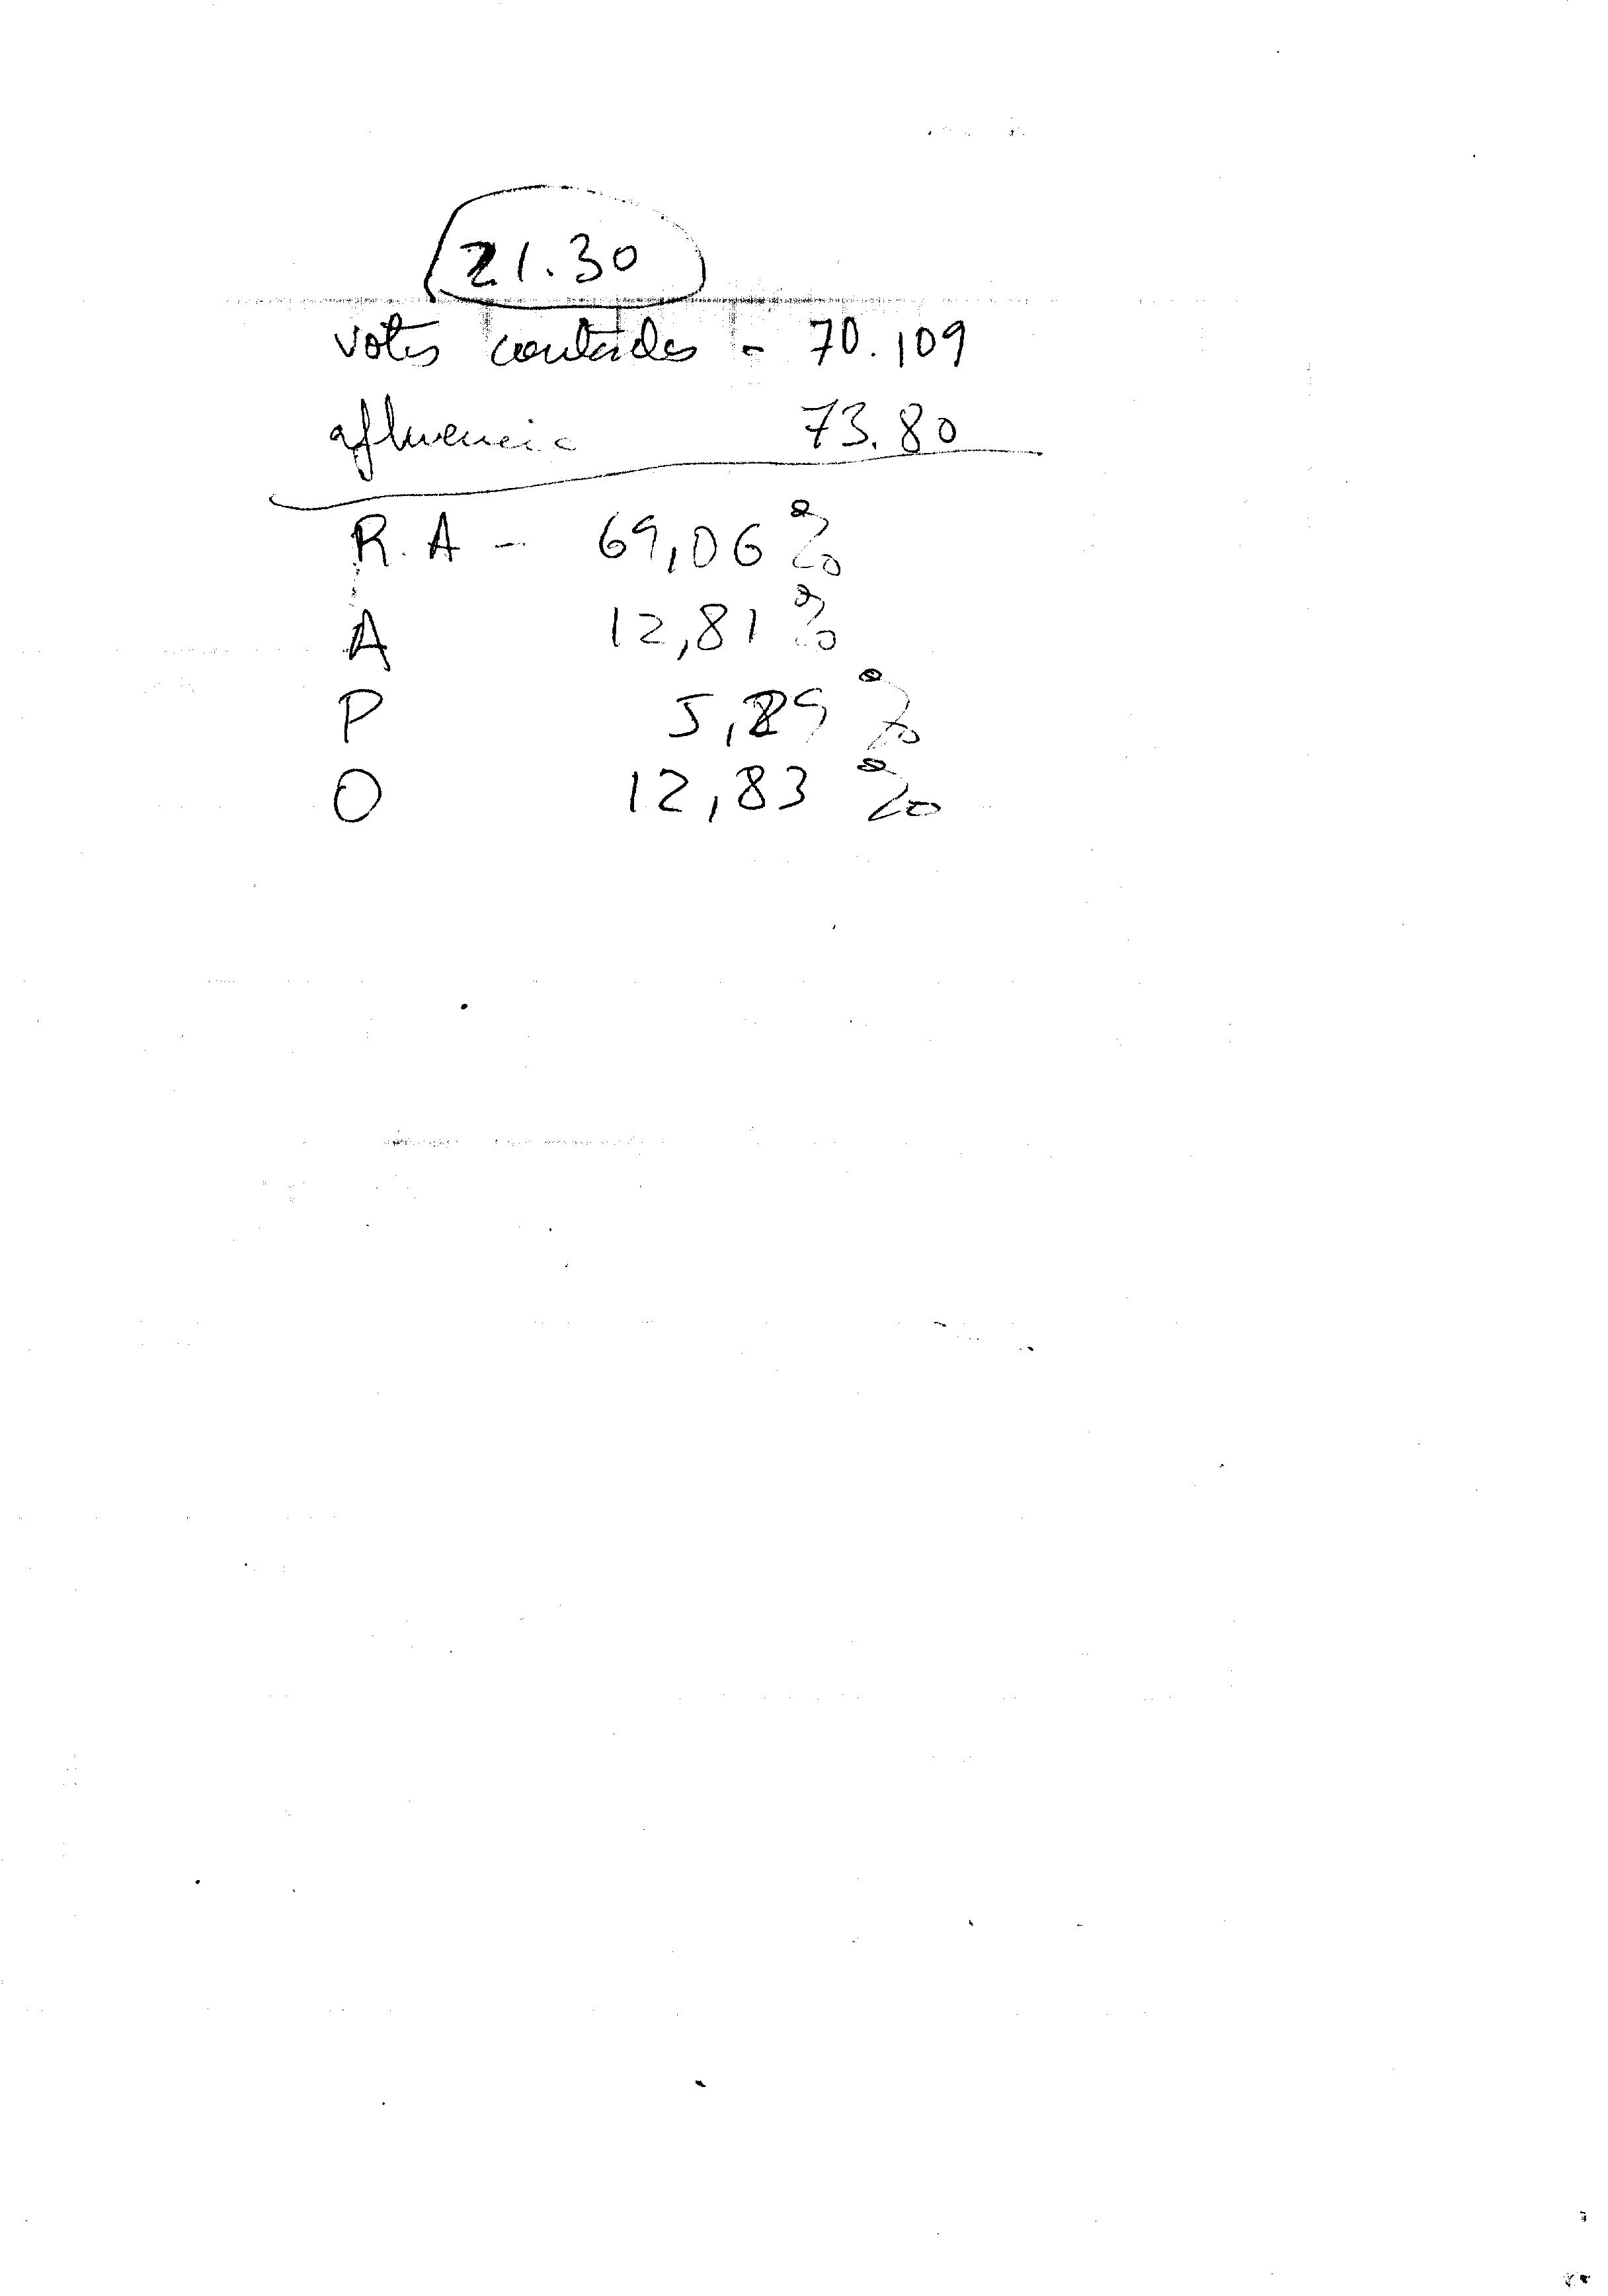 21.30
votos contados - 70.109
afluencia 73.80
R.A - 69,06 %
A 12,81 %
P 5,29 %
O 12,83 %